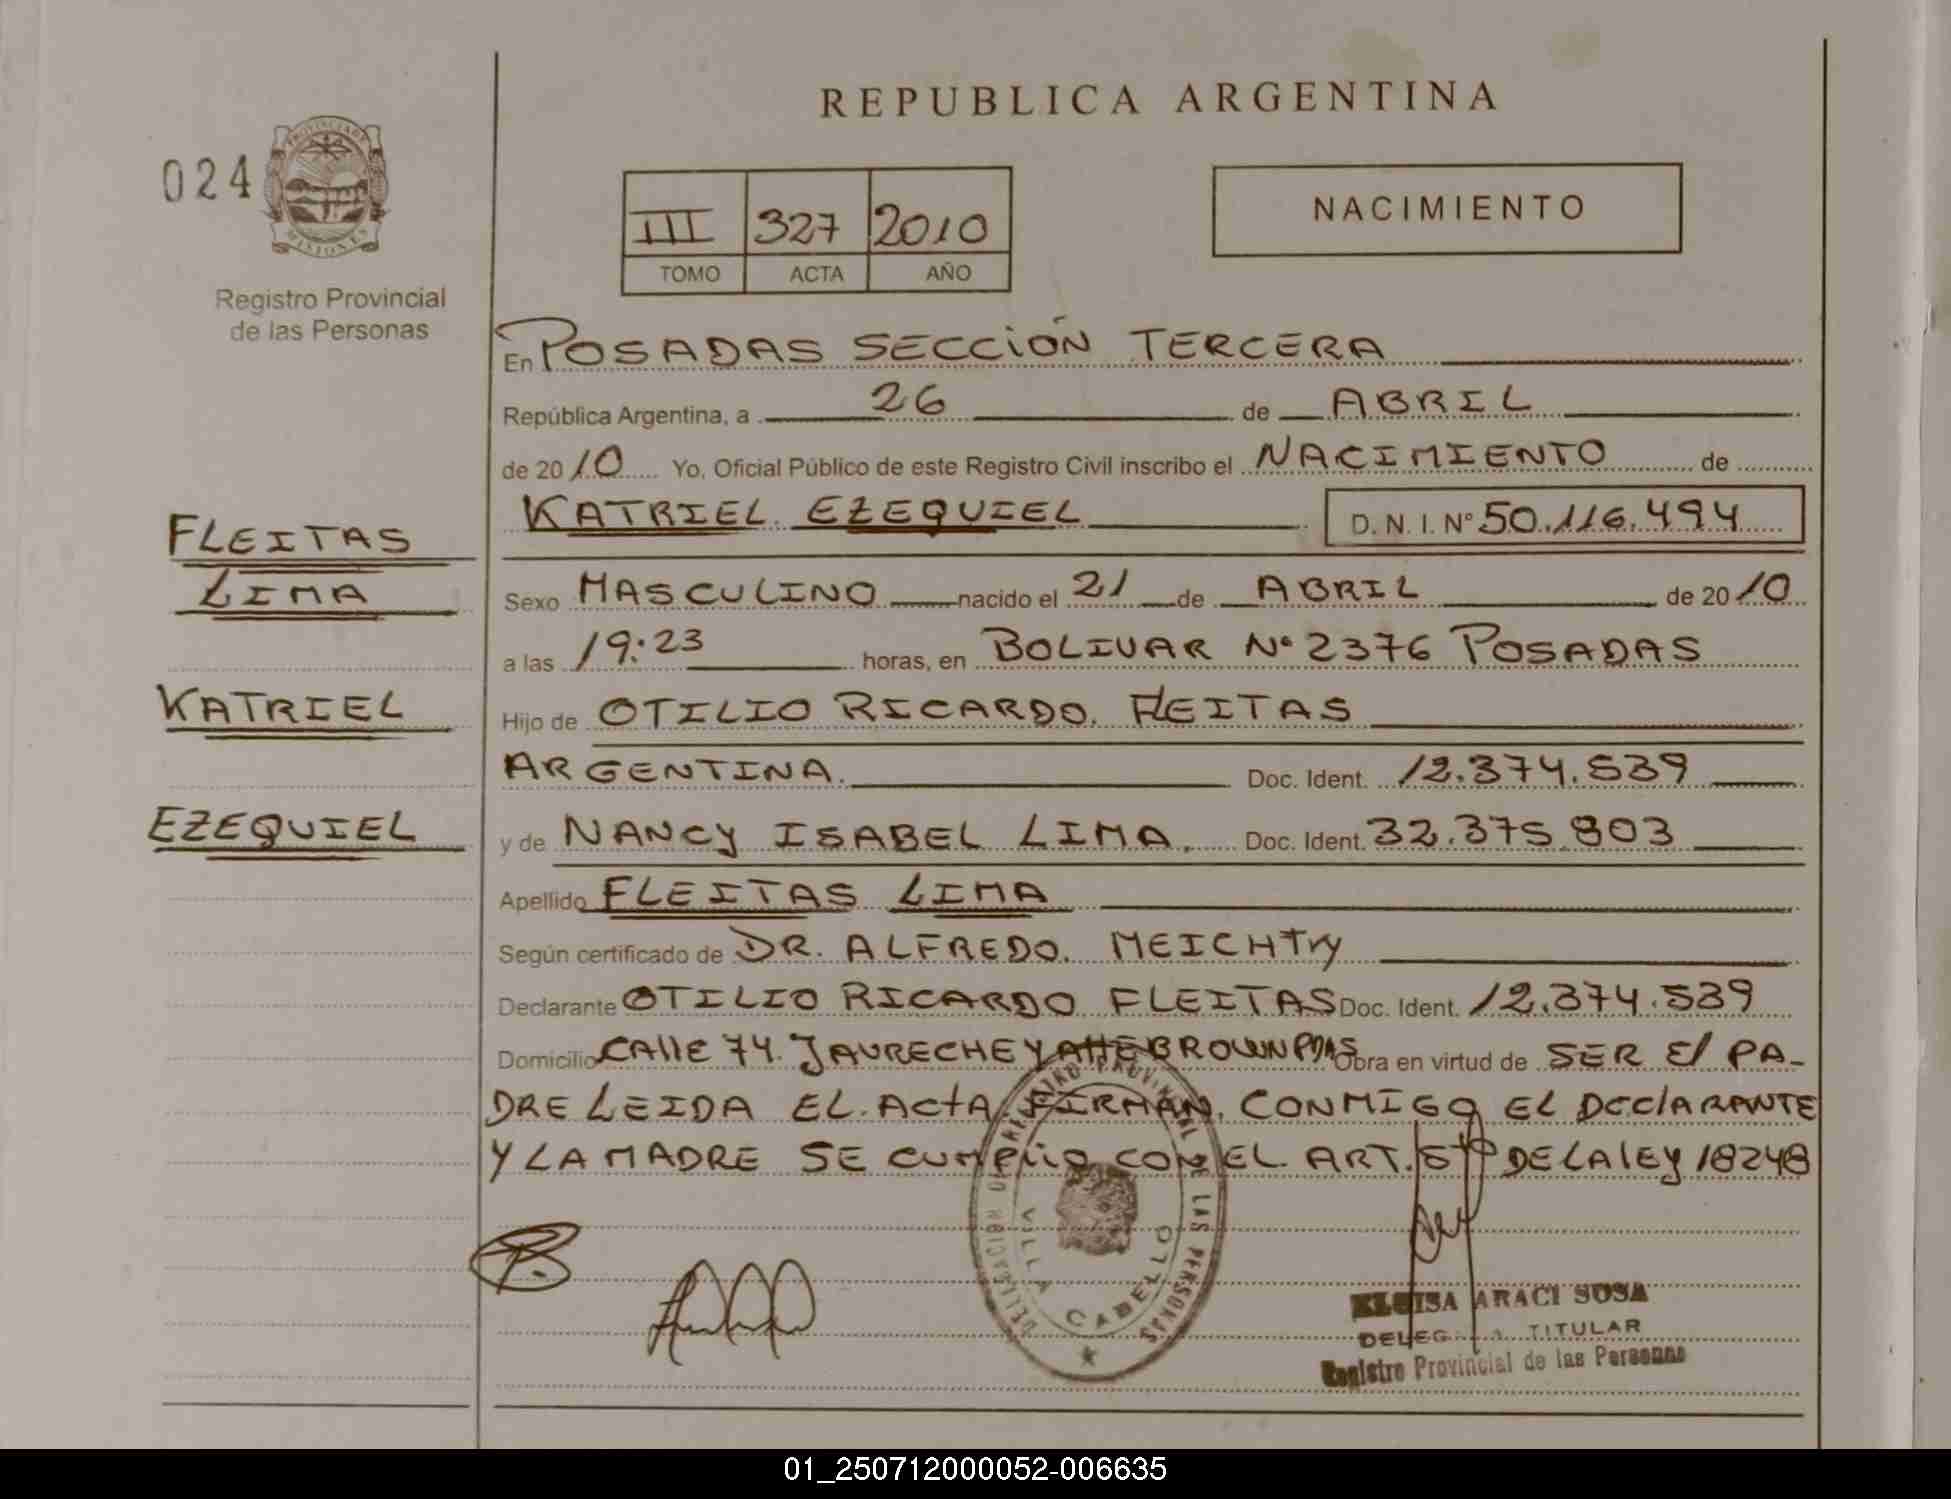 REPUBLICA ARGENTINA
024
PROVINCIA DE
MISIONES
Registro Provincial
de las Personas
III 327 2010
TOMO ACTA AÑO
NACIMIENTO
En POSADAS SECCIÓN TERCERA
República Argentina, a 26 de ABRIL
de 2010 Yo, Oficial Público de este Registro Civil inscribo el NACIMIENTO de
KATRIEL EZEQUIEL D. N. I. N° 50.116.494
FLEITAS
LIMA
KATRIEL
EZEQUIEL
Sexo MASCULINO nacido el 21 de ABRIL de 2010
a las 19:23 horas, en BOLIVAR N° 2376 POSADAS
Hijo de OTILIO RICARDO. FLEITAS
ARGENTINA. Doc. Ident. 12.374.539
y de NANCY ISABEL LIMA. Doc. Ident. 32.375.803
Apellido FLEITAS LIMA
Según certificado de DR. ALFREDO. MEICHTRY
Declarante OTILIO RICARDO FLEITAS Doc. Ident. 12.374.539
Domicilio CAllE 74. JAURECHE Y AttE BROWN PDAS Obra en virtud de SER El PA-
DRE LEIDA EL ActA. FIRMAN. CONMIGO EL DEClARANTE
Y LA MADRE SE CUMPlio CON EL ART. 5to DE LA lEY 18248
DELEGACION DEL REGISTRO PROVINCIAL DE LAS PERSONAS
VILLA CABELLO
ELOISA ARACI SOSA
DELEGADA TITULAR
Registro Provincial de las Personas
01_250712000052-006635